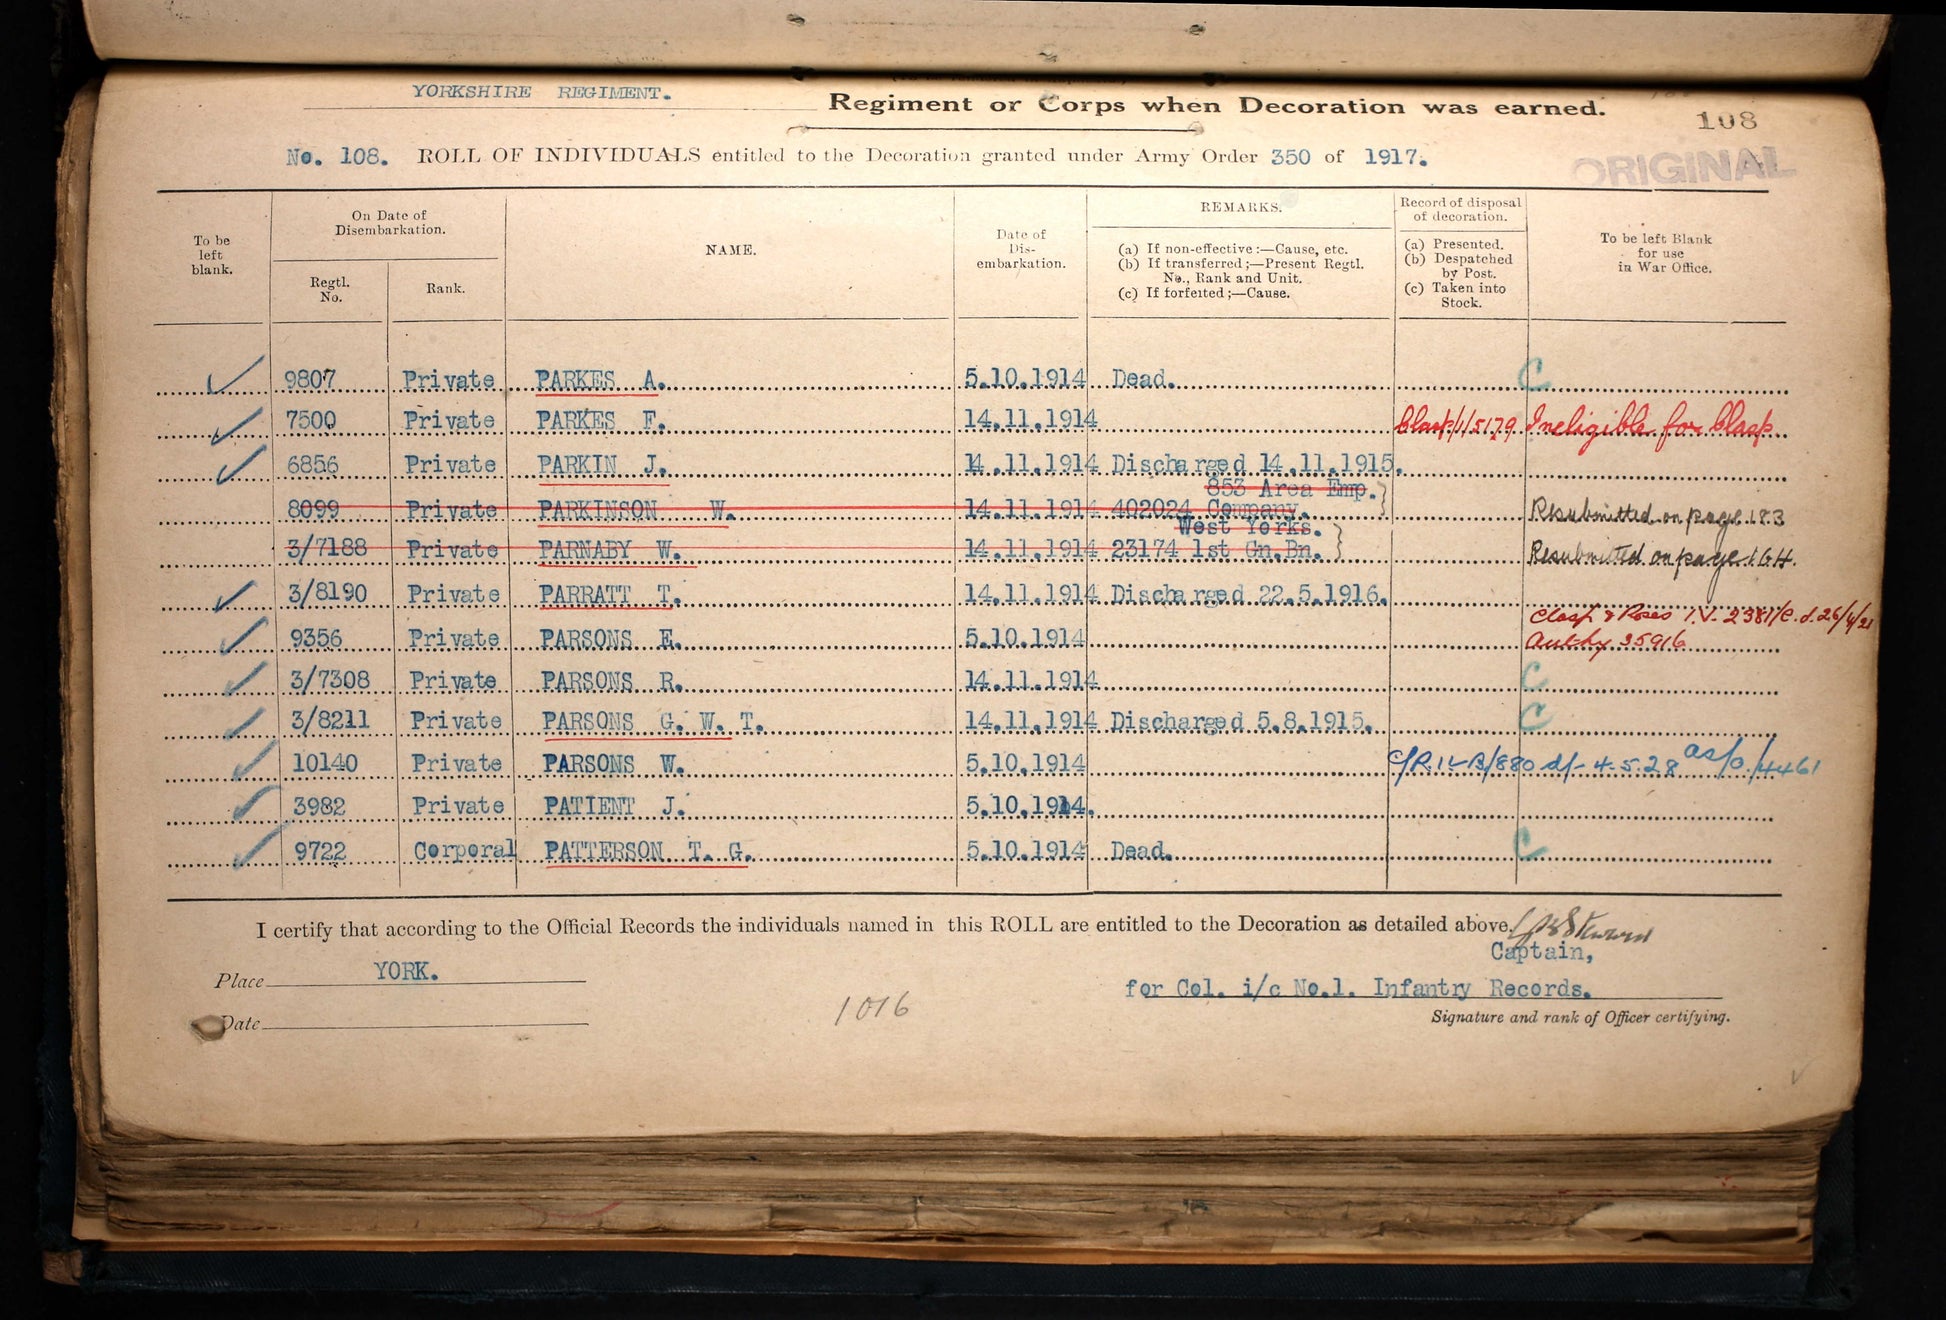 YORKSHIRE REGIMENT. Regiment or Corps when Decoration was earned.
108
No. 108. ROLL OF INDIVIDUALS entitled to the Decoration granted under Army Order 350 of 1917.
ORIGINAL
To be left blank.
On Date of Disembarkation.
Regtl. No.
Rank.
NAME.
Date of Dis-embarkation.
REMARKS.
(a) If non-effective:—Cause, etc.
(b) If transferred;—Present Regtl. No., Rank and Unit.
(c) If forfeited;—Cause.
Record of disposal of decoration.
(a) Presented.
(b) Despatched by Post.
(c) Taken into Stock.
To be left Blank for use in War Office.
9807 Private PARKES A. 5.10.1914 Dead. C
7500 Private PARKES F. 14.11.1914 Clasp/1/5179 Ineligible for Clasp
6856 Private PARKIN J. 14.11.1914 Discharged 14.11.1915.
853 Area Emp.
8099 Private PARKINSON W. 14.11.1914 402024 Company. Resubmitted on page 183
West Yorks.
3/7188 Private PARNABY W. 14.11.1914 23174 1st Gn.Bn. Resubmitted on page 164.
3/8190 Private PARRATT T. 14.11.1914 Discharged 22.5.1916.
Clasp & Roses I.V. 2381/E. d. 26/4/21
9356 Private PARSONS E. 5.10.1914 Authy 35916
3/7308 Private PARSONS R. 14.11.1914 C
3/8211 Private PARSONS G. W. T. 14.11.1914 Discharged 5.8.1915. C
10140 Private PARSONS W. 5.10.1914 /880 d/- 4.5.28 /4461
3982 Private PATIENT J. 5.10.1914.
9722 Corporal PATTERSON T. G. 5.10.1914 Dead. C
I certify that according to the Official Records the individuals named in this ROLL are entitled to the Decoration as detailed above.
Captain,
Place YORK.
for Col. i/c No.1. Infantry Records.
1016
Date
Signature and rank of Officer certifying.